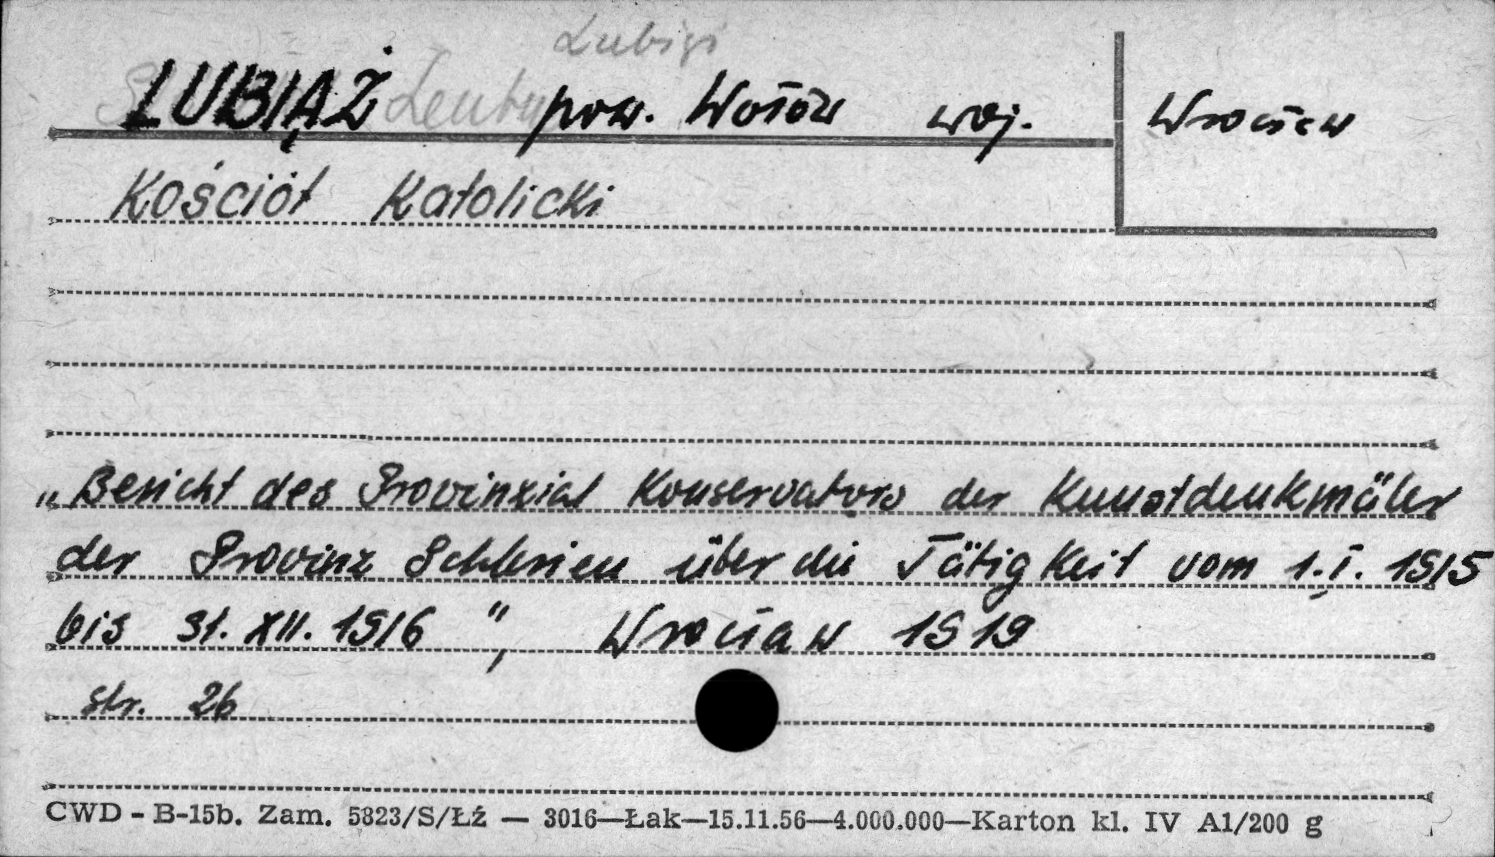 Lubiąż
LUBIĄŻ Leubus pow. Wołów woj. Wrocław
Kościół Katolicki
„Bericht des Provinzial Konservators der Kunstdenkmäler
der Provinz Schlesien über die Tätigkeit vom 1.I.1915
bis 31.XII.1916", Wrocław 1919
str. 26
CWD - B-15b. Zam. 5823/S/Łź — 3016—Łak—15.11.56—4.000.000—Karton kl. IV A1/200 g